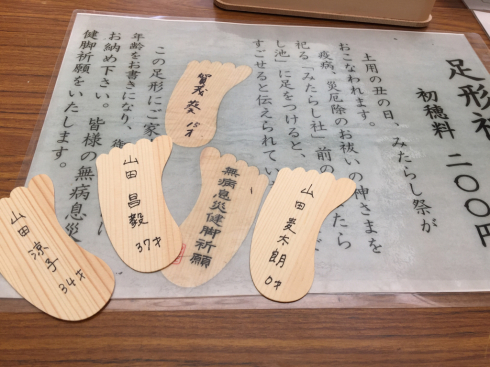 足形祈
初穂料 二〇〇円
土用の丑の日、みたらし祭が
おこなわれます。
疫病、災厄除のお祓いの神さまを
祀る「みたらし社」前の
し池」に足をつけると、
すごせると伝えられてい
この足形にご家
年齢をお書きになり、
お納め下さい。皆様の無病息災
健脚祈願をいたします。
賀茂 葵 15才
無病息災健脚祈願
山田 麦木朗
0才
山田 昌毅
37才
山田 涼子
34才